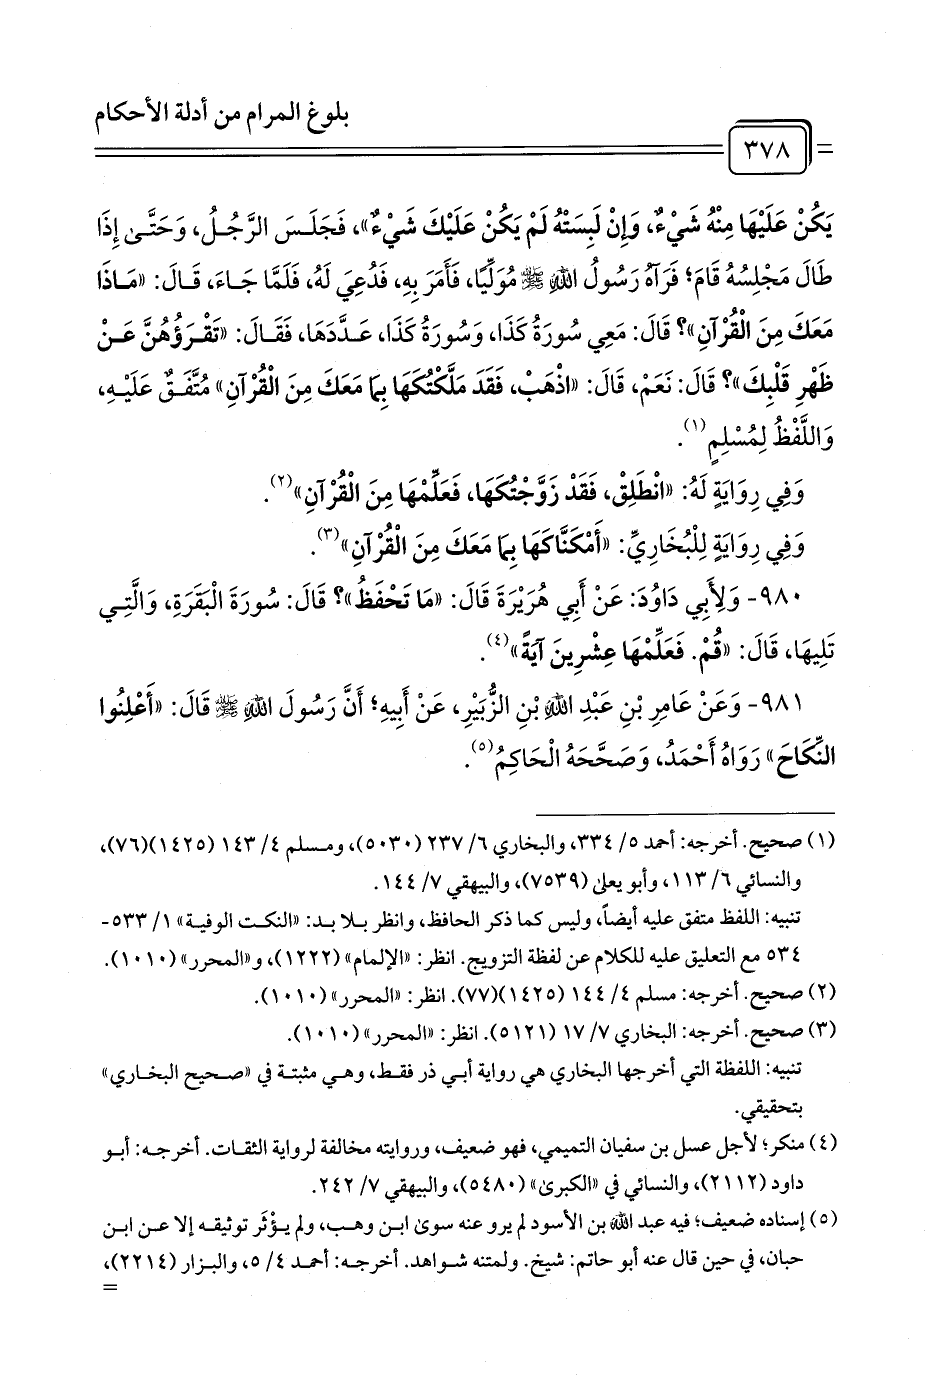 بلوغ المرام من أدلة الأحكام
٣٧٨
يَكُنْ عَلَيْهَا مِنْهُ شَيْءٌ، وَإِنْ لَبِسَتْهُ لَمْ يَكُنْ عَلَيْكَ شَيْءٌ»، فَجَلَسَ الرَّجُلُ، وَحَتَّى إِذَا
طَالَ مَجْلِسُهُ قَامَ؛ فَرَآهُ رَسُولُ اللهِ ﷺ مُوَلِّيًا، فَأَمَرَ بِهِ، فَدُعِيَ لَهُ، فَلَمَّا جَاءَ، قَالَ: «مَاذَا
مَعَكَ مِنَ الْقُرْآنِ»؟ قَالَ: مَعِي سُورَةُ كَذَا، وَسُورَةُ كَذَا، عَدَّدَهَا، فَقَالَ: «تَقْرَؤُهُنَّ عَنْ
ظَهْرِ قَلْبِكَ»؟ قَالَ: نَعَمْ، قَالَ: «اذْهَبْ، فَقَدْ مَلَّكْتُكَهَا بِمَا مَعَكَ مِنَ الْقُرْآنِ» مُتَّفَقٌ عَلَيْهِ،
وَاللَّفْظُ لِمُسْلِمٍ(١).
وَفِي رِوَايَةٍ لَهُ: «انْطَلِقْ، فَقَدْ زَوَّجْتُكَهَا، فَعَلِّمْهَا مِنَ الْقُرْآنِ»(٢).
وَفِي رِوَايَةٍ لِلْبُخَارِيِّ: «أَمْكَنَّاكَهَا بِمَا مَعَكَ مِنَ الْقُرْآنِ»(٣).
٩٨٠- وَلِأَبِي دَاوُدَ: عَنْ أَبِي هُرَيْرَةَ قَالَ: «مَا تَحْفَظُ»؟ قَالَ: سُورَةَ الْبَقَرَةِ، وَالَّتِي
تَلِيهَا، قَالَ: «قُمْ. فَعَلِّمْهَا عِشْرِينَ آيَةً»(٤).
٩٨١- وَعَنْ عَامِرِ بْنِ عَبْدِ اللهِ بْنِ الزُّبَيْرِ، عَنْ أَبِيهِ؛ أَنَّ رَسُولَ اللهِ ﷺ قَالَ: «أَعْلِنُوا
النِّكَاحَ» رَوَاهُ أَحْمَدُ، وَصَحَّحَهُ الْحَاكِمُ(٥).
(١) صحيح. أخرجه: أحمد ٥/ ٣٣٤، والبخاري ٦/ ٢٣٧ (٥٠٣٠)، ومسلم ٤/ ١٤٣ (١٤٢٥)(٧٦)،
والنسائي ٦/ ١١٣، وأبو يعلى (٧٥٣٩)، والبيهقي ٧/ ١٤٤.
تنبيه: اللفظ متفق عليه أيضاً، وليس كما ذكر الحافظ، وانظر بلا بد: «النكت الوفية» ١/ ٥٣٣-
٥٣٤ مع التعليق عليه للكلام عن لفظة التزويج. انظر: «الإلمام» (١٢٢٢)، و«المحرر» (١٠١٠).
(٢) صحيح. أخرجه: مسلم ٤/ ١٤٤ (١٤٢٥)(٧٧). انظر: «المحرر» (١٠١٠).
(٣) صحيح. أخرجه: البخاري ٧/ ١٧ (٥١٢١). انظر: «المحرر» (١٠١٠).
تنبيه: اللفظة التي أخرجها البخاري هي رواية أبي ذر فقط، وهي مثبتة في «صحيح البخاري»
بتحقيقي.
(٤) منكر؛ لأجل عسل بن سفيان التميمي، فهو ضعيف، وروايته مخالفة لرواية الثقات. أخرجه: أبو
داود (٢١١٢)، والنسائي في «الكبرى» (٥٤٨٠)، والبيهقي ٧/ ٢٤٢.
(٥) إسناده ضعيف؛ فيه عبد الله بن الأسود لم يرو عنه سوى ابن وهب، ولم يؤثَر توثيقه إلا عن ابن
حبان، في حين قال عنه أبو حاتم: شيخ. ولمتنه شواهد. أخرجه: أحمد ٤/ ٥، والبزار (٢٢١٤)،
=